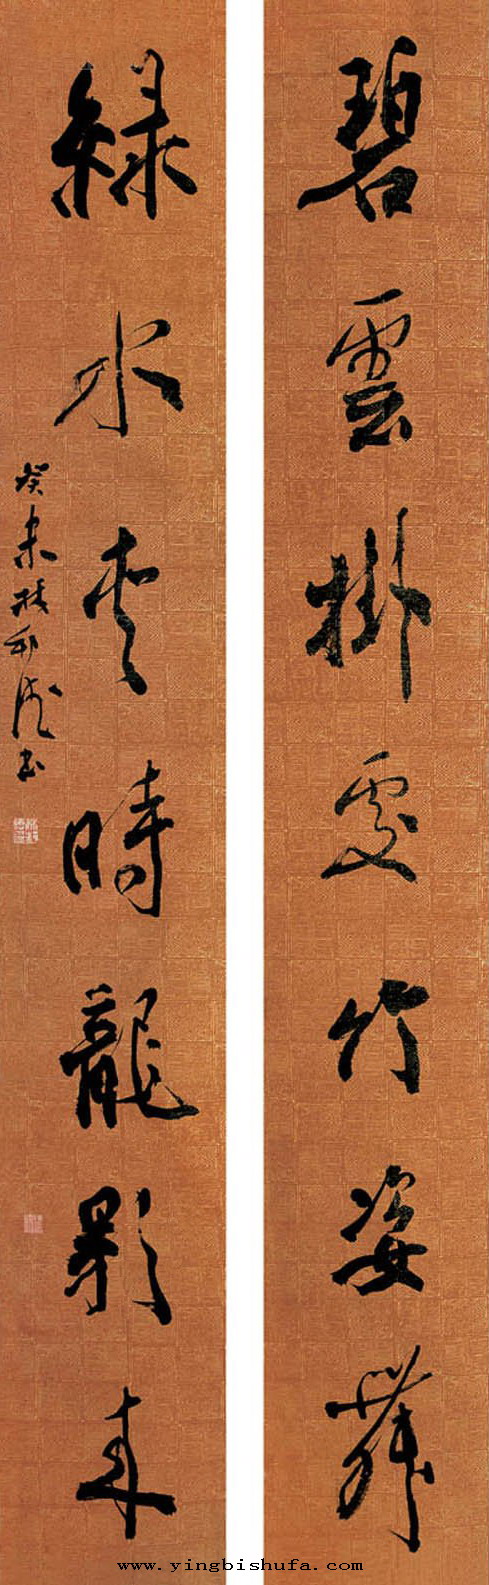 碧雲掛處竹姿舞
綠水時龍影来
癸未書
www.yingbishufa.com